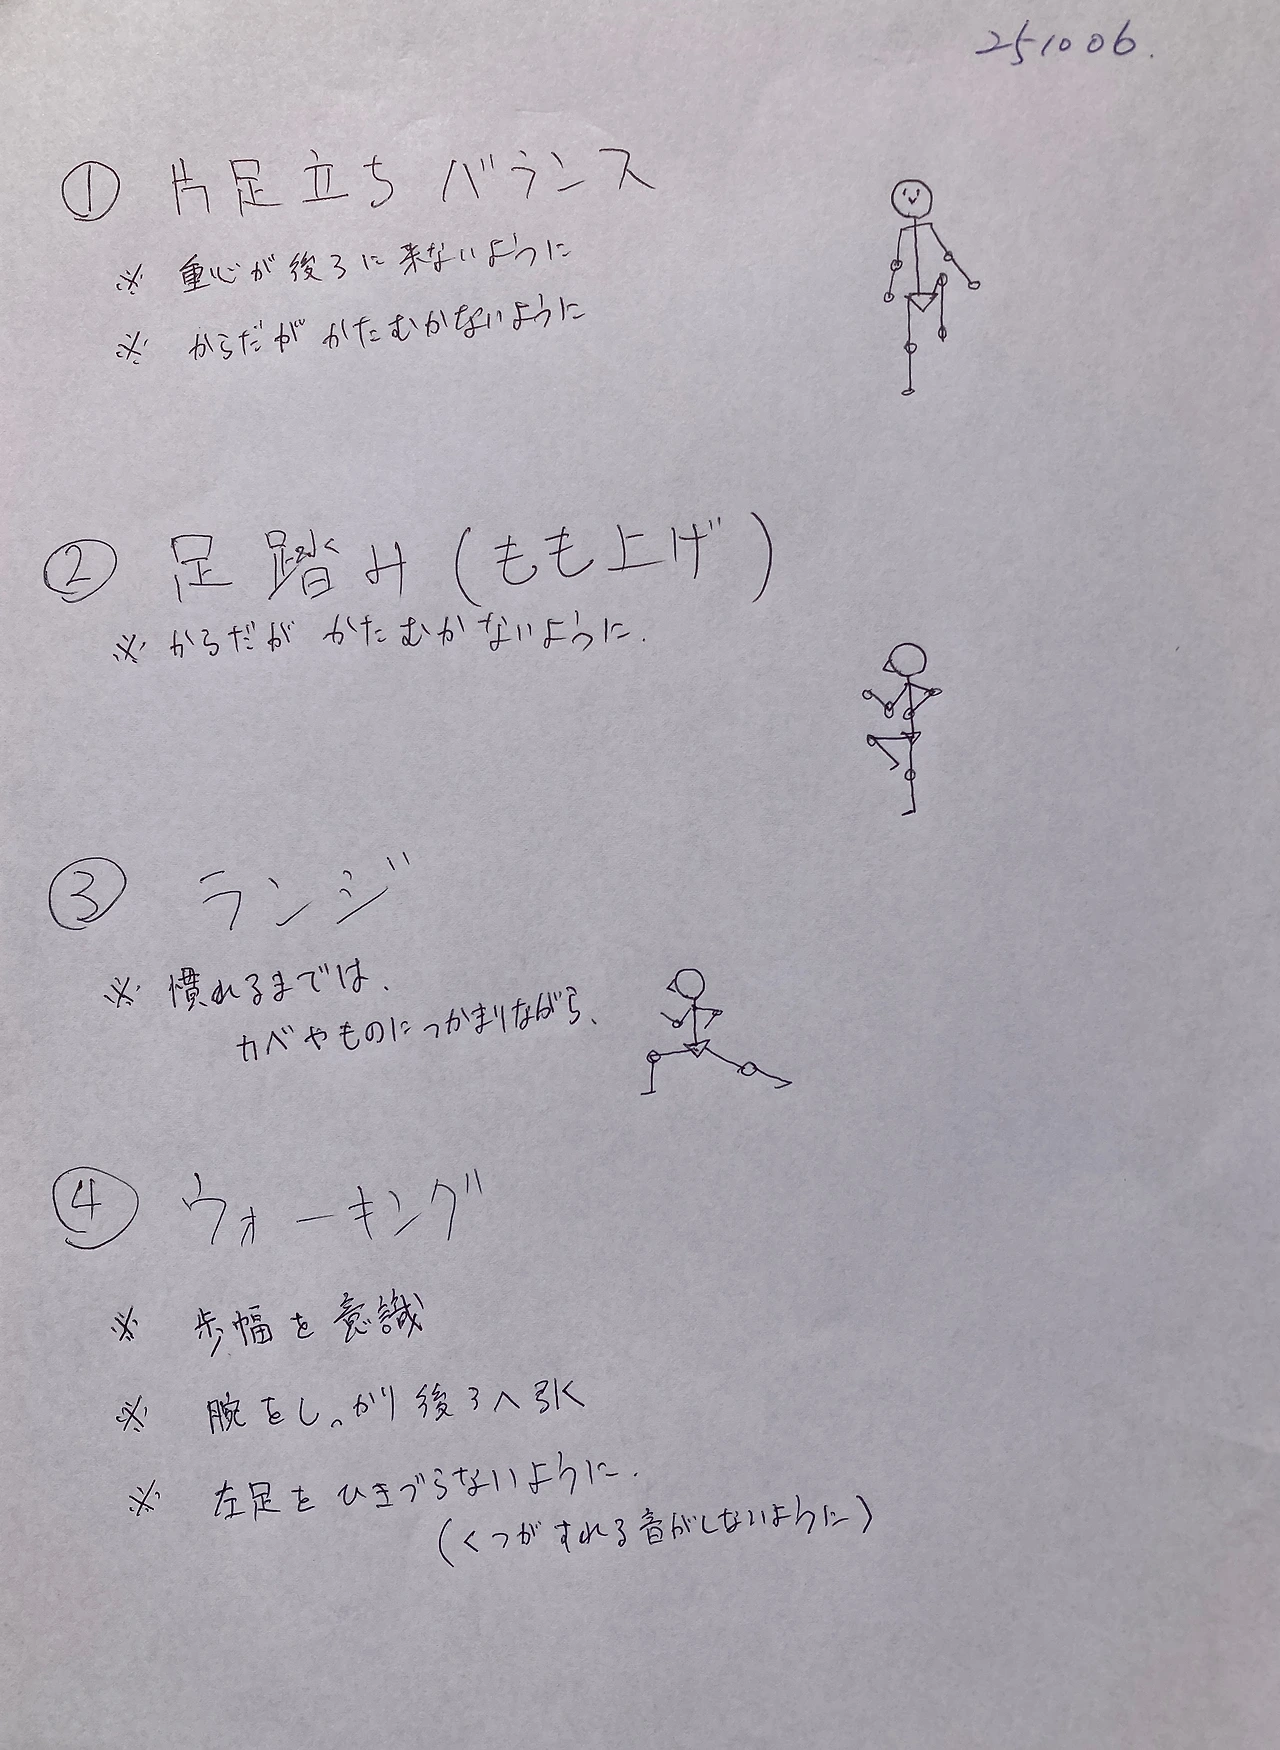 251006.
① 片足立ちバランス
※ 重心が後ろに来ないように
※ からだが かたむかないように
② 足踏み(もも上げ)
※ からだが かたむかないように.
③ ランジ
※ 慣れるまでは、
カベやものにつかまりながら、
④ ウォーキング
※ 歩幅を意識
※ 腕をしっかり後ろへ引く
※ 左足をひきづらないように.
(くつがすれる音がしないように)